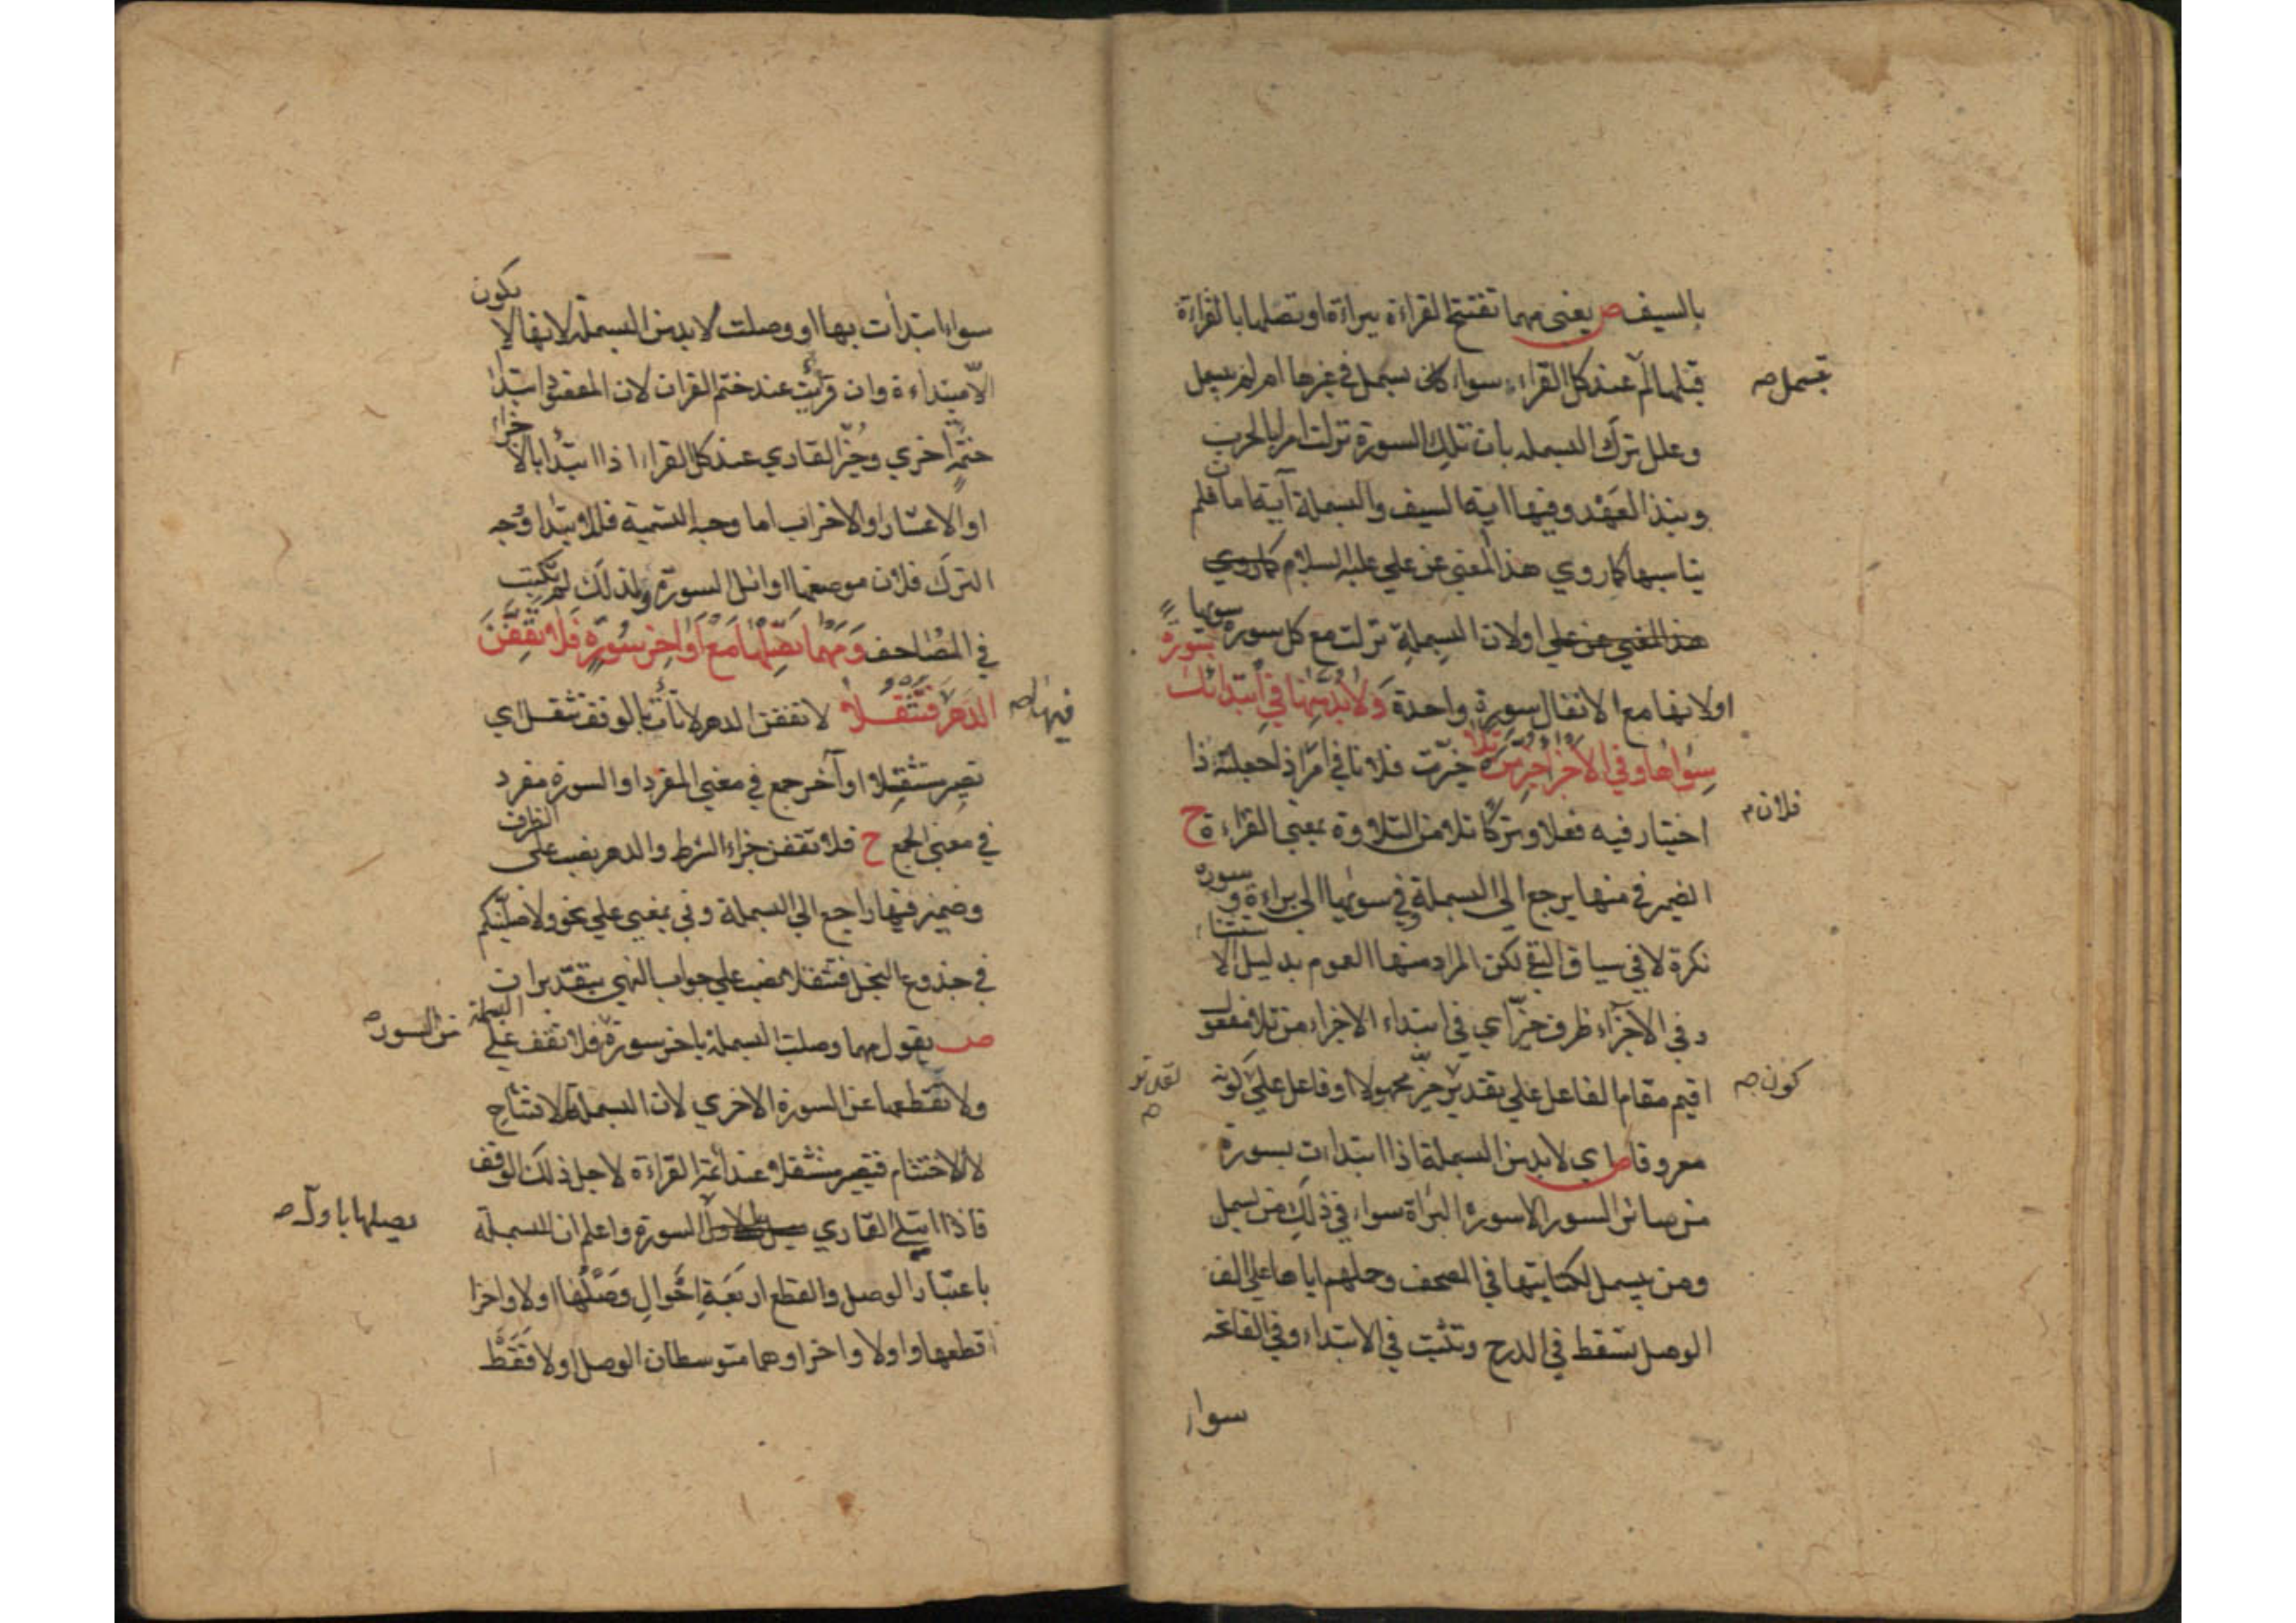 بالسيف ص يعني مهما تفتتح القراءة ببراءة او تصلها بالقراءة
قبلها لم عند كل القراء سواء كان يبسمل في غيرها ام لم يبسمل
تبسمل صه
وعلل ترك البسمله بان تلك السورة نزلت امرا بالحرب
ونبذ العهد وفيها اية السيف والبسملة آية امان فلم
يناسبها كما روي هذا المعني عن علي عليه السلام كما روي
هذا المعني عن علي او لان البسملة نزلت مع كل سورة سويها
او لانها مع الانفال سورة واحدة وَلَا بُدَّ مِنْهَا فِي ابْتِدَائِكَ سُورَةً
سِوَاهَا وفي الاجزاء خُيِّرَ مَنْ تَلَا خيّرت فلانا في امر اذ اجعلته ذا
فلان م
اختيار فيه فعلا وتركا تلا من التلاوة بمعني القراءة ح
الضمير في منها يرجع الي البسملة وفي سويها الي براءة وسورة
نكرة لا في سياق النفي لكن المراد منها العموم بدليل الاستثناء
وفي الاجزاء ظرف خيّر اي في ابتداء الاجزاء من تلا مفعول
اقيم مقام الفاعل علي تقدير خيّر مجهولا او فاعل علي كونه
كون صه
معروفا ص اي لا بد من البسملة اذا ابتدات بسورة
من سائر السور الا سورة البراة سواء في ذلك من بسمل
ومن يبسمل لكتابتها في المصحف وحلهم اياها علي الف
الوصل تسقط في الدرج وتثبت في الابتداء وفي الفاتحه
سواء
سواء ابتدات بها او وصلت لا بد من البسملة لانها لا يكون
الا مبتداءة وان قرئت عند ختم القران لان المعقود ابتدا
ختمة اخري وخيّر القاري عند كل القراء اذا ابتدا بالاجزاء
او الاعشار او الاحزاب اما وجه التسمية فللابتدا ووجه
الترك فلان موضعها اوائل السورة ولذلك لم تكتب
في المصاحف وَمَهْمَا تَصِلْهَا مَعْ اَوَاخِرِ سُورَةٍ فَلَا تَقِفَنَّ
الدَّهْرَ فَتَثْقُلَا لا تقفن الدهر لا تات بالوقف تثقل اي
فيها صه
تصير مستثقلا اواخر جمع في معني المفرد او السورة مفرد
في معني الجمع ح فلا تقفن جزاء الشرط والدهر نصب علي الظرف
وضمير فيها راجع الي البسملة وفي بمعني علي نحو ولاصلبنكم
في جذوع النخل فتثقلا نصب علي جواب النهي بتقدير ان
ص يقول مهما وصلت البسملة باخر سورة فلا تقف علي البسملة
من السورة صه
ولا تقطعها عن السورة الاخري لان البسملة للافتتاح
لا للاختتام فتصير مستثقلا عند ائمة القراءة لاجل ذلك الوقف
فاذا ابتلي القاري السورة واعلم ان للبسملة
يصلها باول صه
باعتبار الوصل والقطع اربعة احوال وصلها اولا واخرا
قطعها اولا واخرا وهما متوسطان الوصل اولا فقط